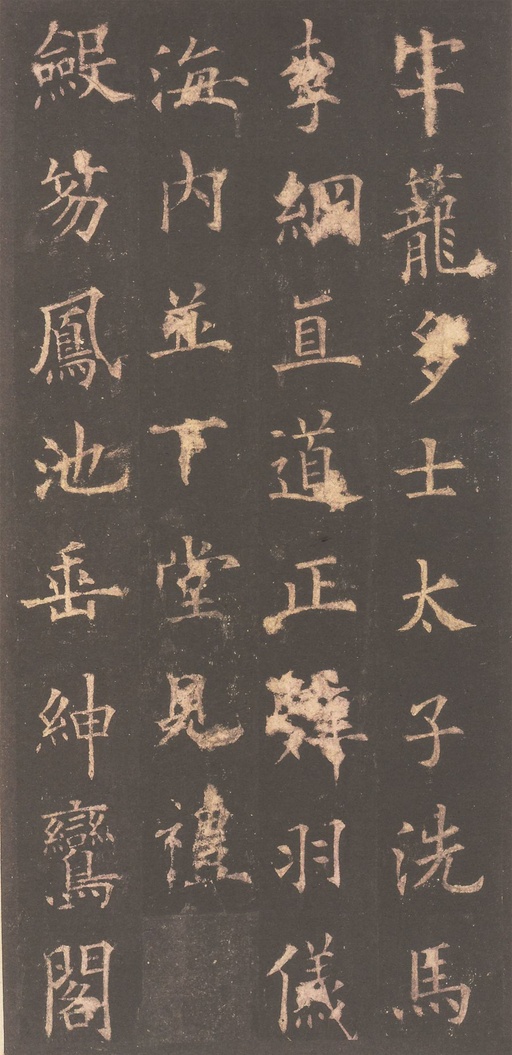 牢籠多士太子洗馬
李綱直道正辭羽儀
海内並下堂見禮
斂笏鳳池垂紳鸞閣